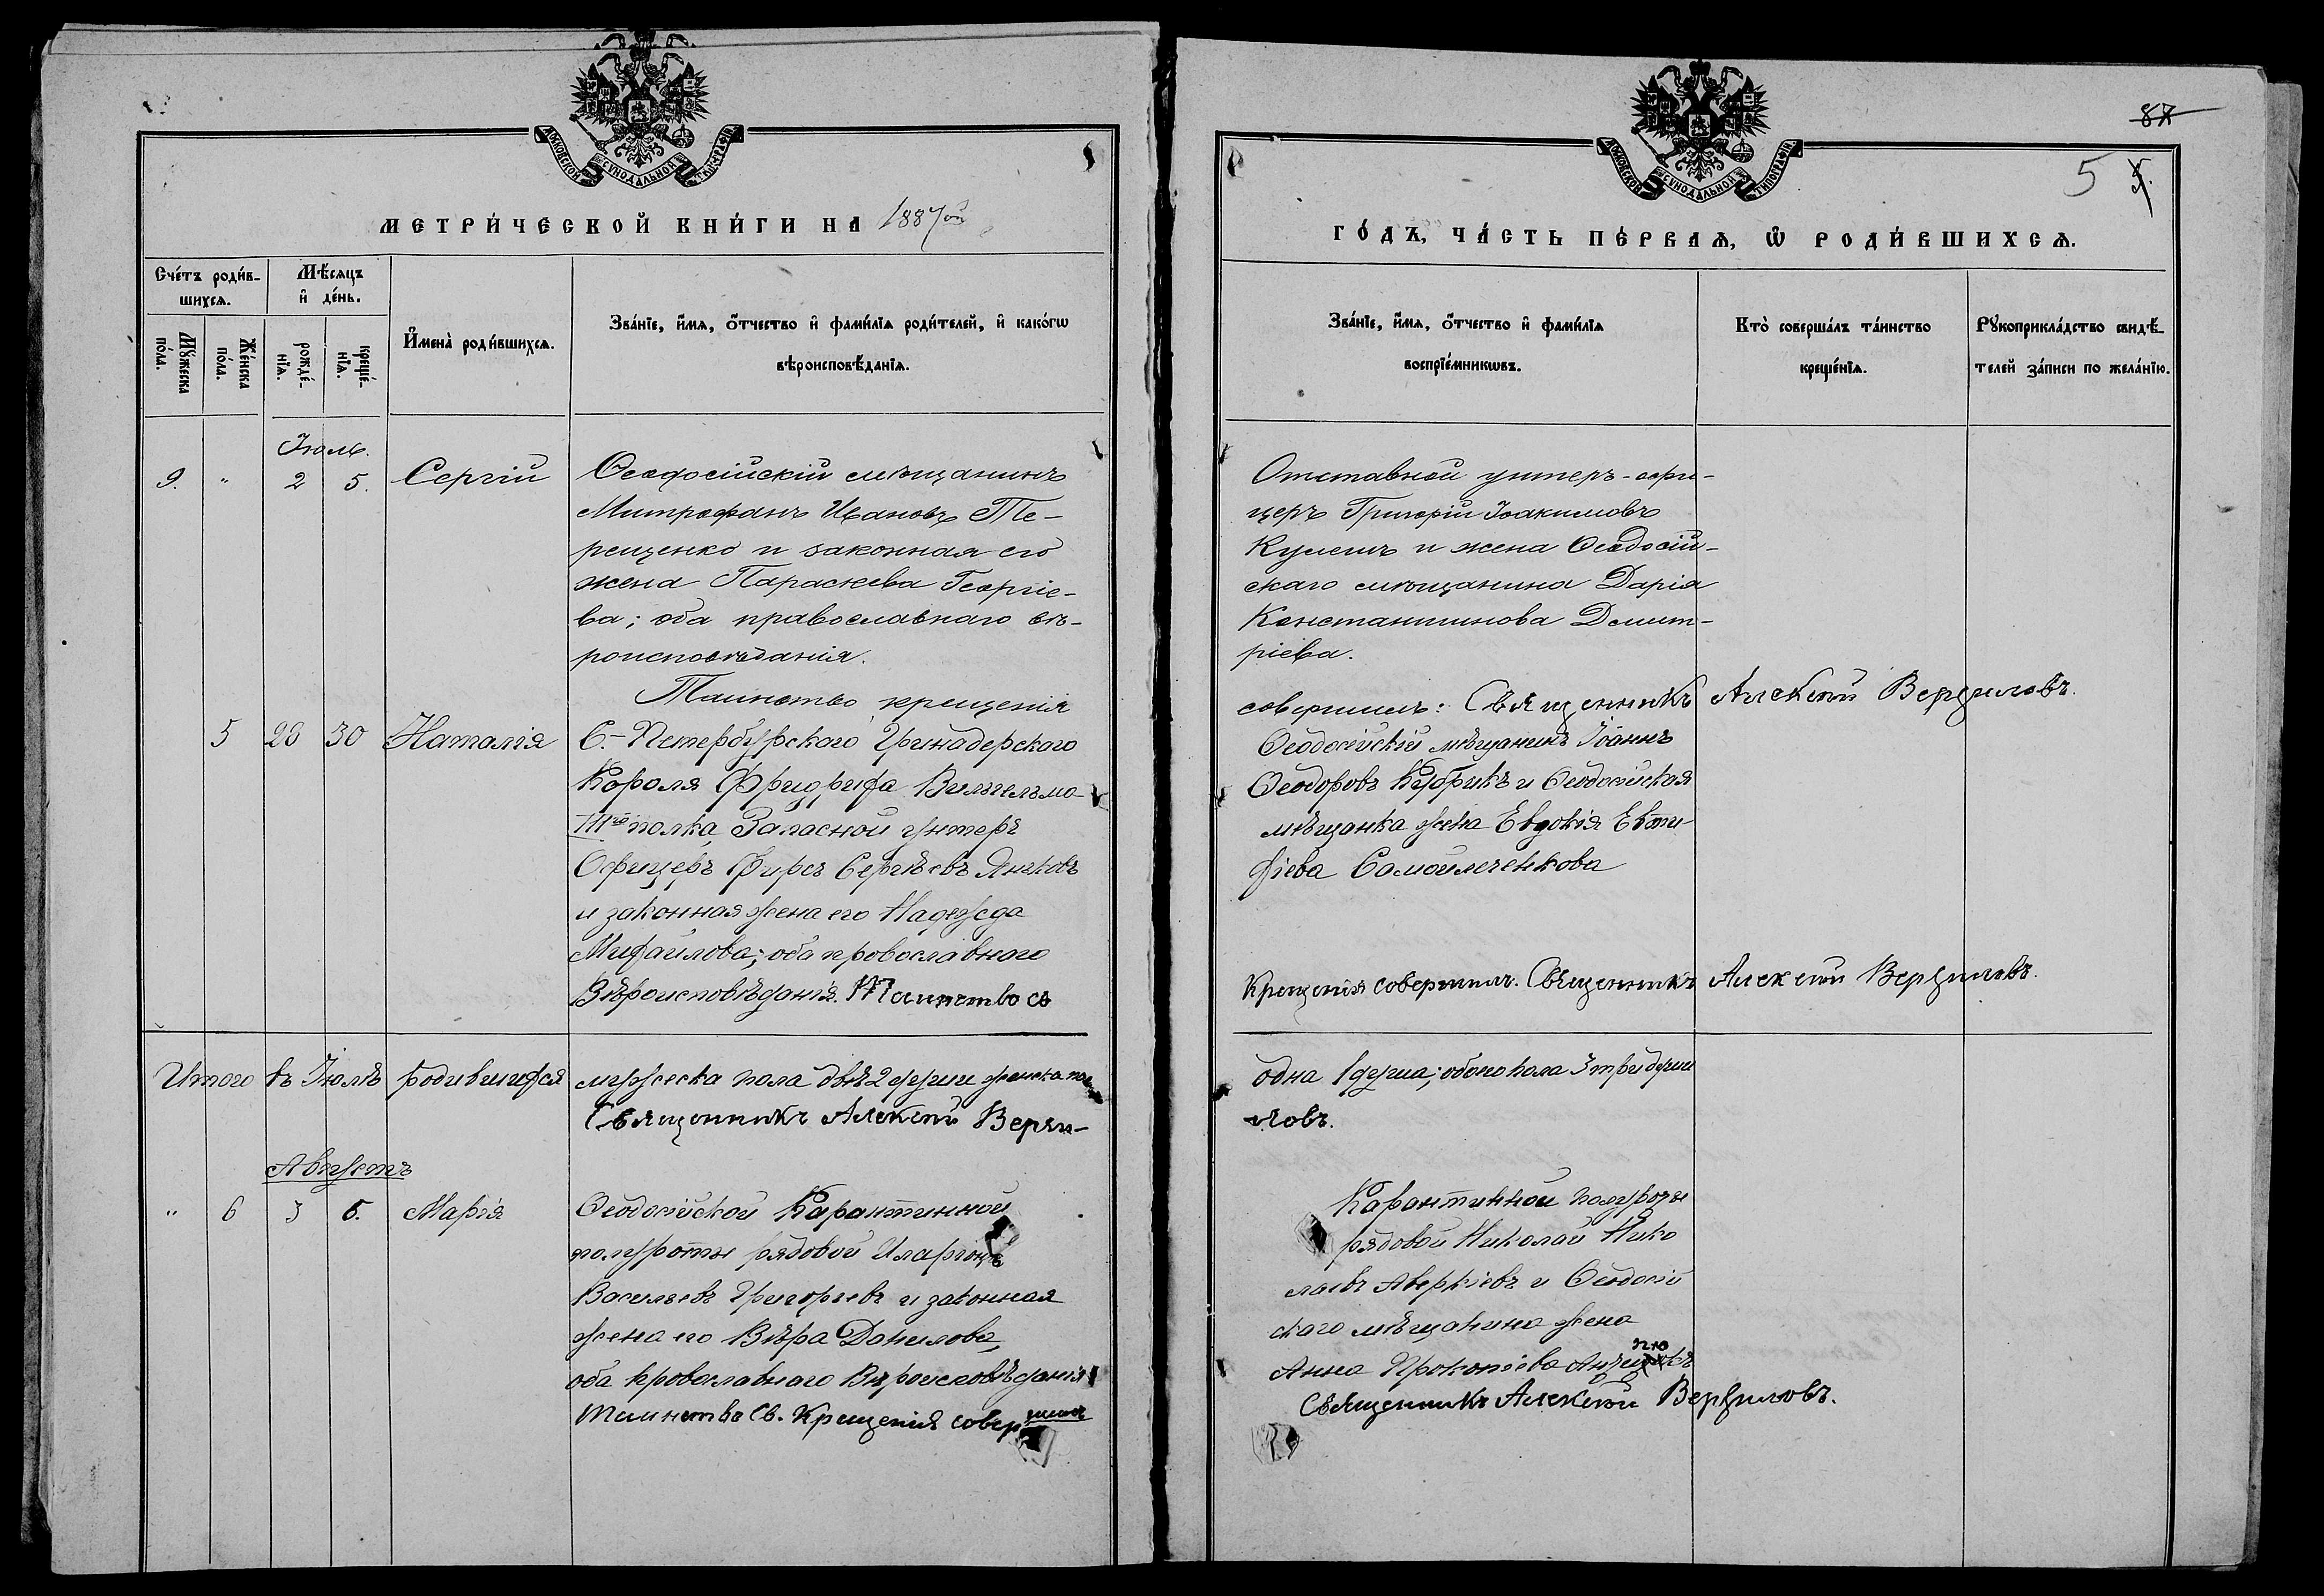 МОСКОВСКОЙ СѴНОДАЛЬНОЙ ТИПОГРАФІИ
МЕТРИ́ЧЕСКОЙ КНИ́ГИ НА 1887ой
Сче́тъ роди́в-
шихсѧ.
Мѣ́сѧцъ
и҆ де́нь.
Мꙋ́жеска
по́ла.
Же́нска
по́ла.
рожде́-
нїѧ.
креще́-
нїѧ.
И҆мена̀ роди́вшихсѧ.
Зва́нїе, и҆́мѧ, ѻ҆́тчество и҆ фами́лїѧ роди́телей, и҆ како́гѡ
вѣроисповѣ́данїѧ.
Іюль.
9. " 2 5. Сергій
Ѳеодосійскій мѣщанинъ
Митрофанъ Ивановъ Те-
рещенко и законная его
жена Параскева Георгіе-
ва; оба православнаго вѣ-
роисповѣданія.
Таинство крещенія
5 26 30 Наталія
С.-Петербурского Гринадерского
Короля Фридриха Вильгельма
IIIго полка, Запасной унтеръ
Офицеръ Фирсъ Сергѣевъ
и законная жена его Надежда
Михайлова; оба провославного
Вѣроисповѣданія. Таинство св
Итого въ Іюлѣ родившихся мужеска пола двѣ 2 души женска пол
Священникъ Алексій Верзи-
Августъ
" 6 3 6. Марія
Ѳеодосійской Карантинной
полуроты рядовой Иларіонъ
Васильевъ Григорьевъ и законная
жена его Вѣра Данилова,
оба провославнаго Вѣроисповѣданія
Таинство Св. Крещенія совершилъ
МОСКОВСКОЙ СѴНОДАЛЬНОЙ ТИПОГРАФІИ
87
5
ГО́ДЪ, ЧА́СТЬ ПЕ́РВАѦ, Ѡ҆ РОДИ́ВШИХСѦ.
Зва́нїе, и҆́мѧ, ѻ҆́тчество и҆ фами́лїѧ
воспрїе́мникѡвъ.
Кто̀ соверша́лъ та́инство
креще́нїѧ.
Рꙋкоприкла́дство свидѣ́-
телей за́писи по жела́нїю.
Отставной унтеръ-офи-
церъ Григорій Іоакимовъ
Кулешъ и жена Ѳеодосій-
скаго мѣщанина Дарія
Константинова Димит-
ріева.
совершилъ: Священникъ Алексій Верзиловъ.
Ѳеодосійскій мѣщанинъ Іоаннъ
Ѳеодоровъ Кубрикъ и Ѳеодосійская
мѣщанка жена Евдокія Евти-
хіева Самойлеченкова
Крещенія совершилъ. Священникъ Алексій Верзиловъ.
одна 1 душа; обоего пола 3 три души
ловъ.
Карантинной полуроты
рядовой Николай Нико
лаевъ Аверкіевъ и Ѳеодосій
скаго мѣщанина жена
Анна Прокопіева
Священникъ Алексій Верзиловъ.